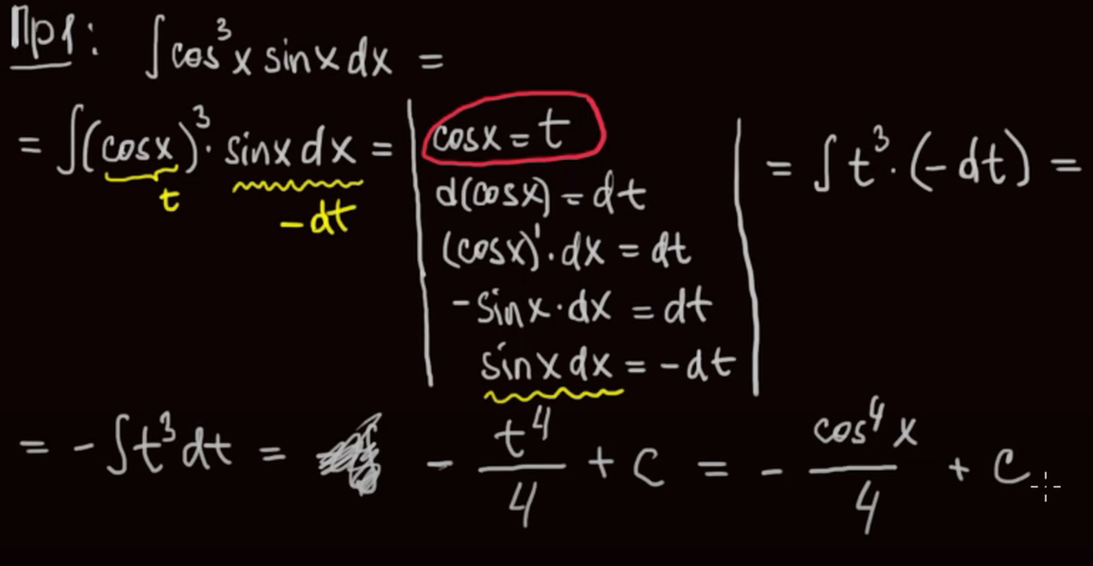 Пр1: ∫cos³x sinx dx =
= ∫(cosx)³· sinx dx =
t
-dt
cosx = t
d(cosx) = dt
(cosx)'· dx = dt
-sinx·dx = dt
sinx dx = -dt
= ∫t³·(-dt) =
= -∫t³dt = - t⁴/4 + C = - cos⁴x/4 + C